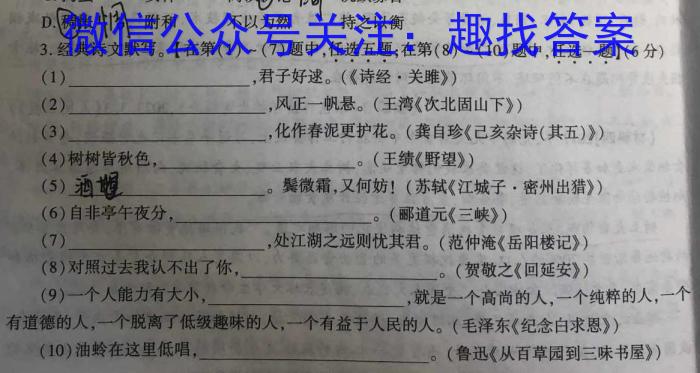 D.稱 附和 不以为然 持之以衡
微信公众号关注：趣找答案
3.经典诗文默写。[在第(1)—(7)题中,任选五题;在第(8)—(10)题中,任选一题](6分)
(1)____________,君子好逑。(《诗经·关雎》)
(2)____________,风正一帆悬。(王湾《次北固山下》)
(3)____________,化作春泥更护花。(龚自珍《己亥杂诗(其五)》)
(4)树树皆秋色,____________。(王绩《野望》)
(5)酒酣____________。鬓微霜,又何妨!(苏轼《江城子·密州出猎》)
(6)自非亭午夜分,____________。(郦道元《三峡》)
(7)____________,处江湖之远则忧其君。(范仲淹《岳阳楼记》)
(8)对照过去我认不出了你,____________。(贺敬之《回延安》)
(9)一个人能力有大小,____________,就是一个高尚的人,一个纯粹的人,一个
有道德的人,一个脱离了低级趣味的人,一个有益于人民的人。(毛泽东《纪念白求恩》)
(10)油蛉在这里低唱,____________。(鲁迅《从百草园到三味书屋》)